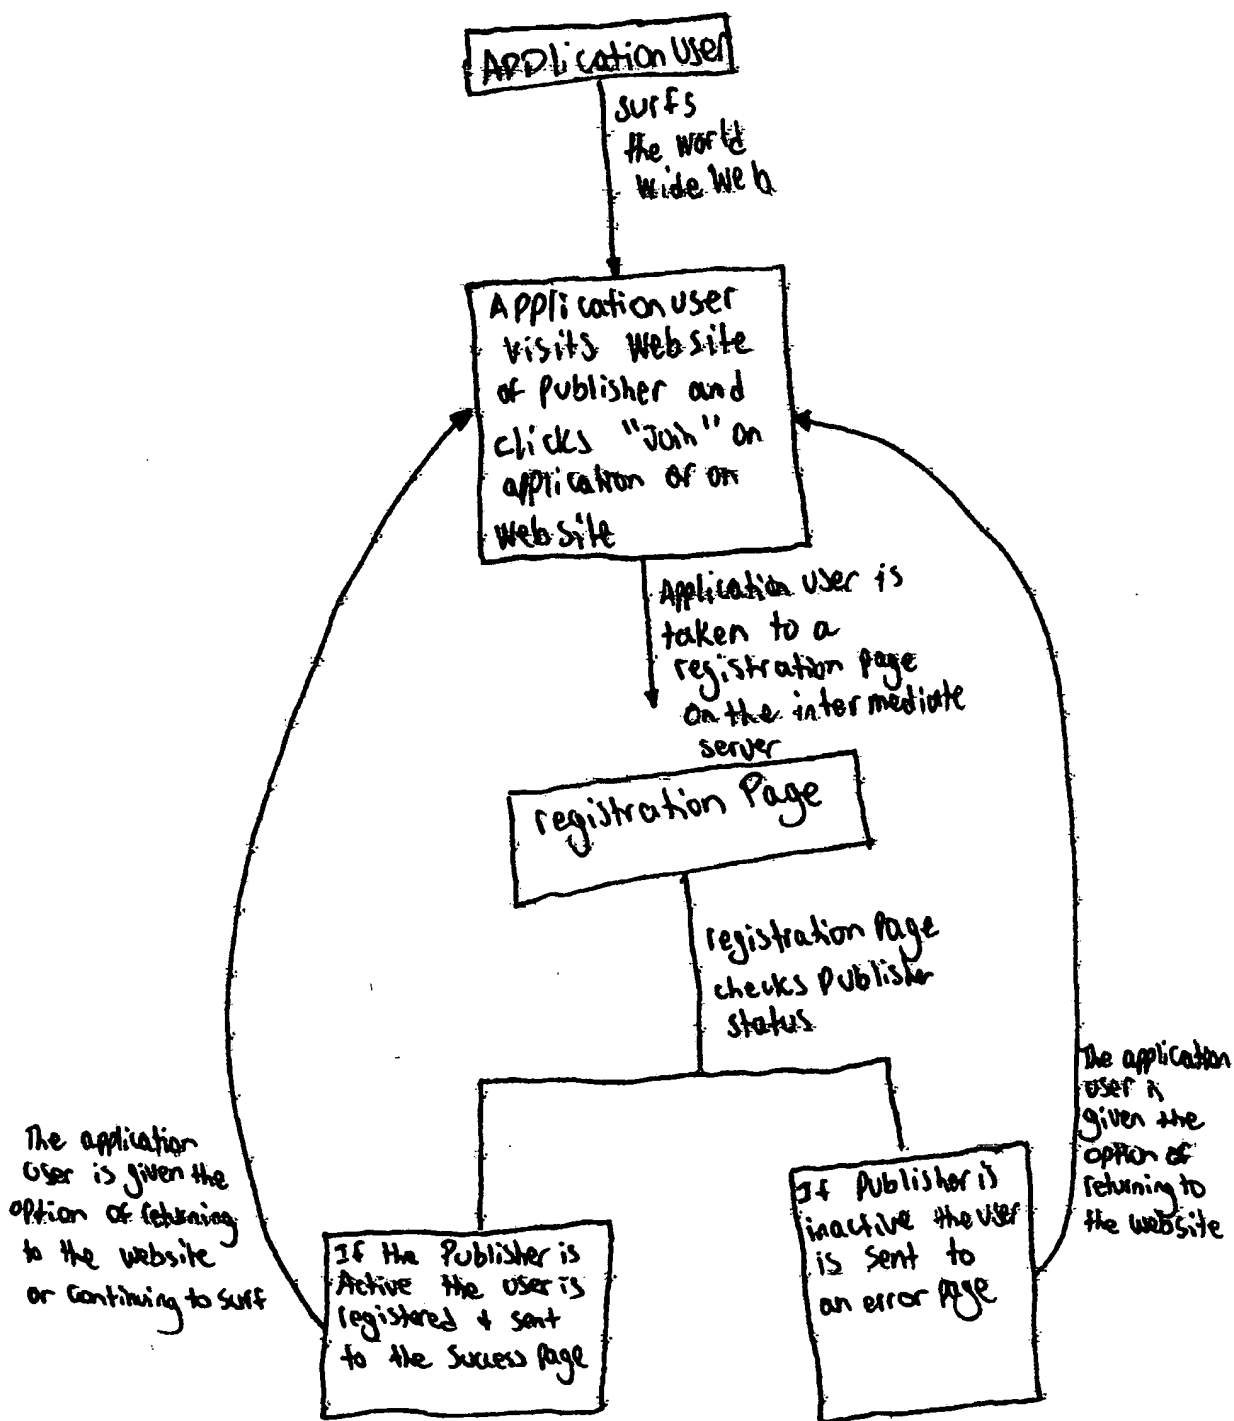 Application User
surfs
the world
wide web
Application user
visits website
of Publisher and
clicks "Join" on
application or on
website
Application user is
taken to a
registration page
on the intermediate
server
registration Page
registration Page
checks Publisher
status
The application
user is given the
option of returning
to the website
or continuing to surf
If the Publisher is
Active the user is
registered & sent
to the Success Page
If Publisher is
inactive the user
is sent to
an error page
The application
user is
given the
option of
returning to
the website